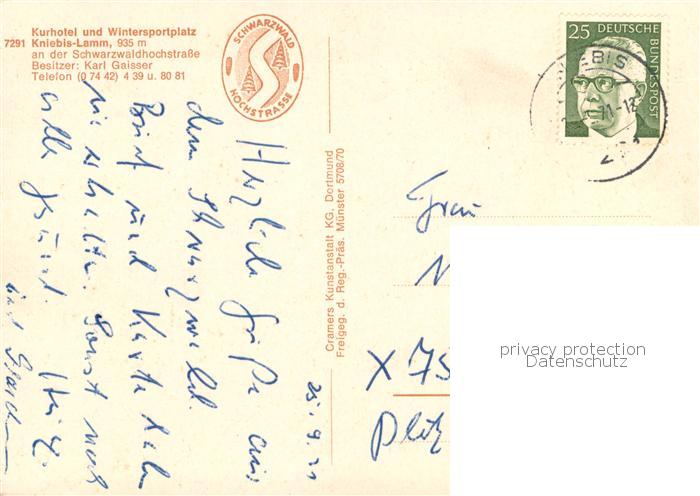 Kurhotel und Wintersportplatz
7291 Kniebis-Lamm, 935 m
an der Schwarzwaldhochstraße
Besitzer: Karl Gaisser
Telefon (0 74 42) 4 39 u. 80 81
SCHWARZWALD
HOCHSTRASSE
25 DEUTSCHE
BUNDESPOST
KNIEBIS
71-12
25.9.71
Herzliche Grüße aus
dem Schwarzwald.
Brief und Karte habe
wir erhalten. Sonst noch
alle gesund.
Cramers Kunstanstalt KG, Dortmund
Freigeg. d. Reg.-Präs. Münster 5708/70
Frau
X 75
privacy protection
Datenschutz